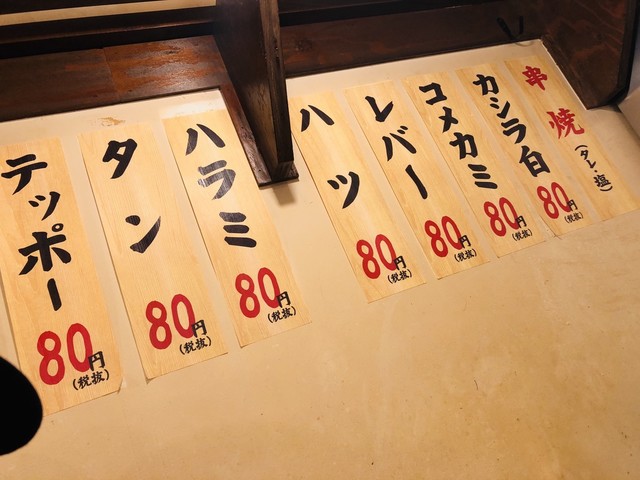 串焼
(タレ・塩)
カシラ白
80円
(税抜)
コメカミ
80円
(税抜)
レバー
80円
(税抜)
ハツ
80円
(税抜)
ハラミ
80円
(税抜)
タン
80円
(税抜)
テッポー
80円
(税抜)